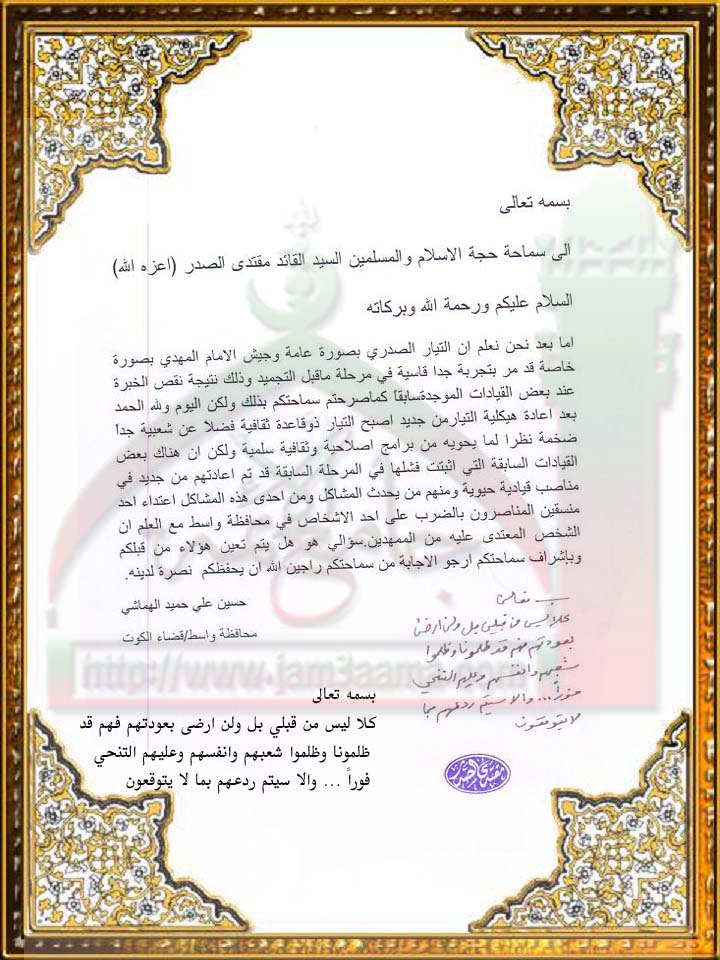 بسمه تعالى
الى سماحة حجة الاسلام والمسلمين السيد القائد مقتدى الصدر (اعزه الله)
السلام عليكم ورحمة الله وبركاته
اما بعد نحن نعلم ان التيار الصدري بصورة عامة وجيش الامام المهدي بصورة
خاصة قد مر بتجربة جدا قاسية في مرحلة ماقبل التجميد وذلك نتيجة نقص الخبرة
عند بعض القيادات الموجدةسابقا كماصرحتم سماحتكم بذلك ولكن اليوم ولله الحمد
بعد اعادة هيكلية التيارمن جديد اصبح التيار ذوقاعدة ثقافية فضلا عن شعبية جداً
ضخمة نظرا لما يحويه من برامج اصلاحية وثقافية سلمية ولكن ان هناك بعض
القيادات السابقة التي اثبتت فشلها في المرحلة السابقة قد تم اعادتهم من جديد في
مناصب قيادية حيوية ومنهم من يحدث المشاكل ومن احدى هذه المشاكل اعتداء احد
منسقين المناصرون بالضرب على احد الاشخاص في محافظة واسط مع العلم ان
الشخص المعتدى عليه من الممهدين.سؤالي هو هل يتم تعين هؤلاء من قبلكم
وبإشراف سماحتكم ارجو الاجابة من سماحتكم راجين الله ان يحفظكم نصرة لدينه.
حسين علي حميد الهماشي
محافظة واسط/قضاء الكوت
بسمه تعالى
كلا ليس من قبلي بل ولن ارضى
بعودتهم فهم قد ظلمونا وظلموا
شعبهم وانفسهم وعليهم التنحي
فوراً ... والا سيتم ردعهم بما
لا يتوقعون
مقتدى الصدر
http://www.jam3aama
بسمه تعالى
كلا ليس من قبلي بل ولن ارضى بعودتهم فهم قد
ظلمونا وظلموا شعبهم وانفسهم وعليهم التنحي
فوراً ... والا سيتم ردعهم بما لا يتوقعون